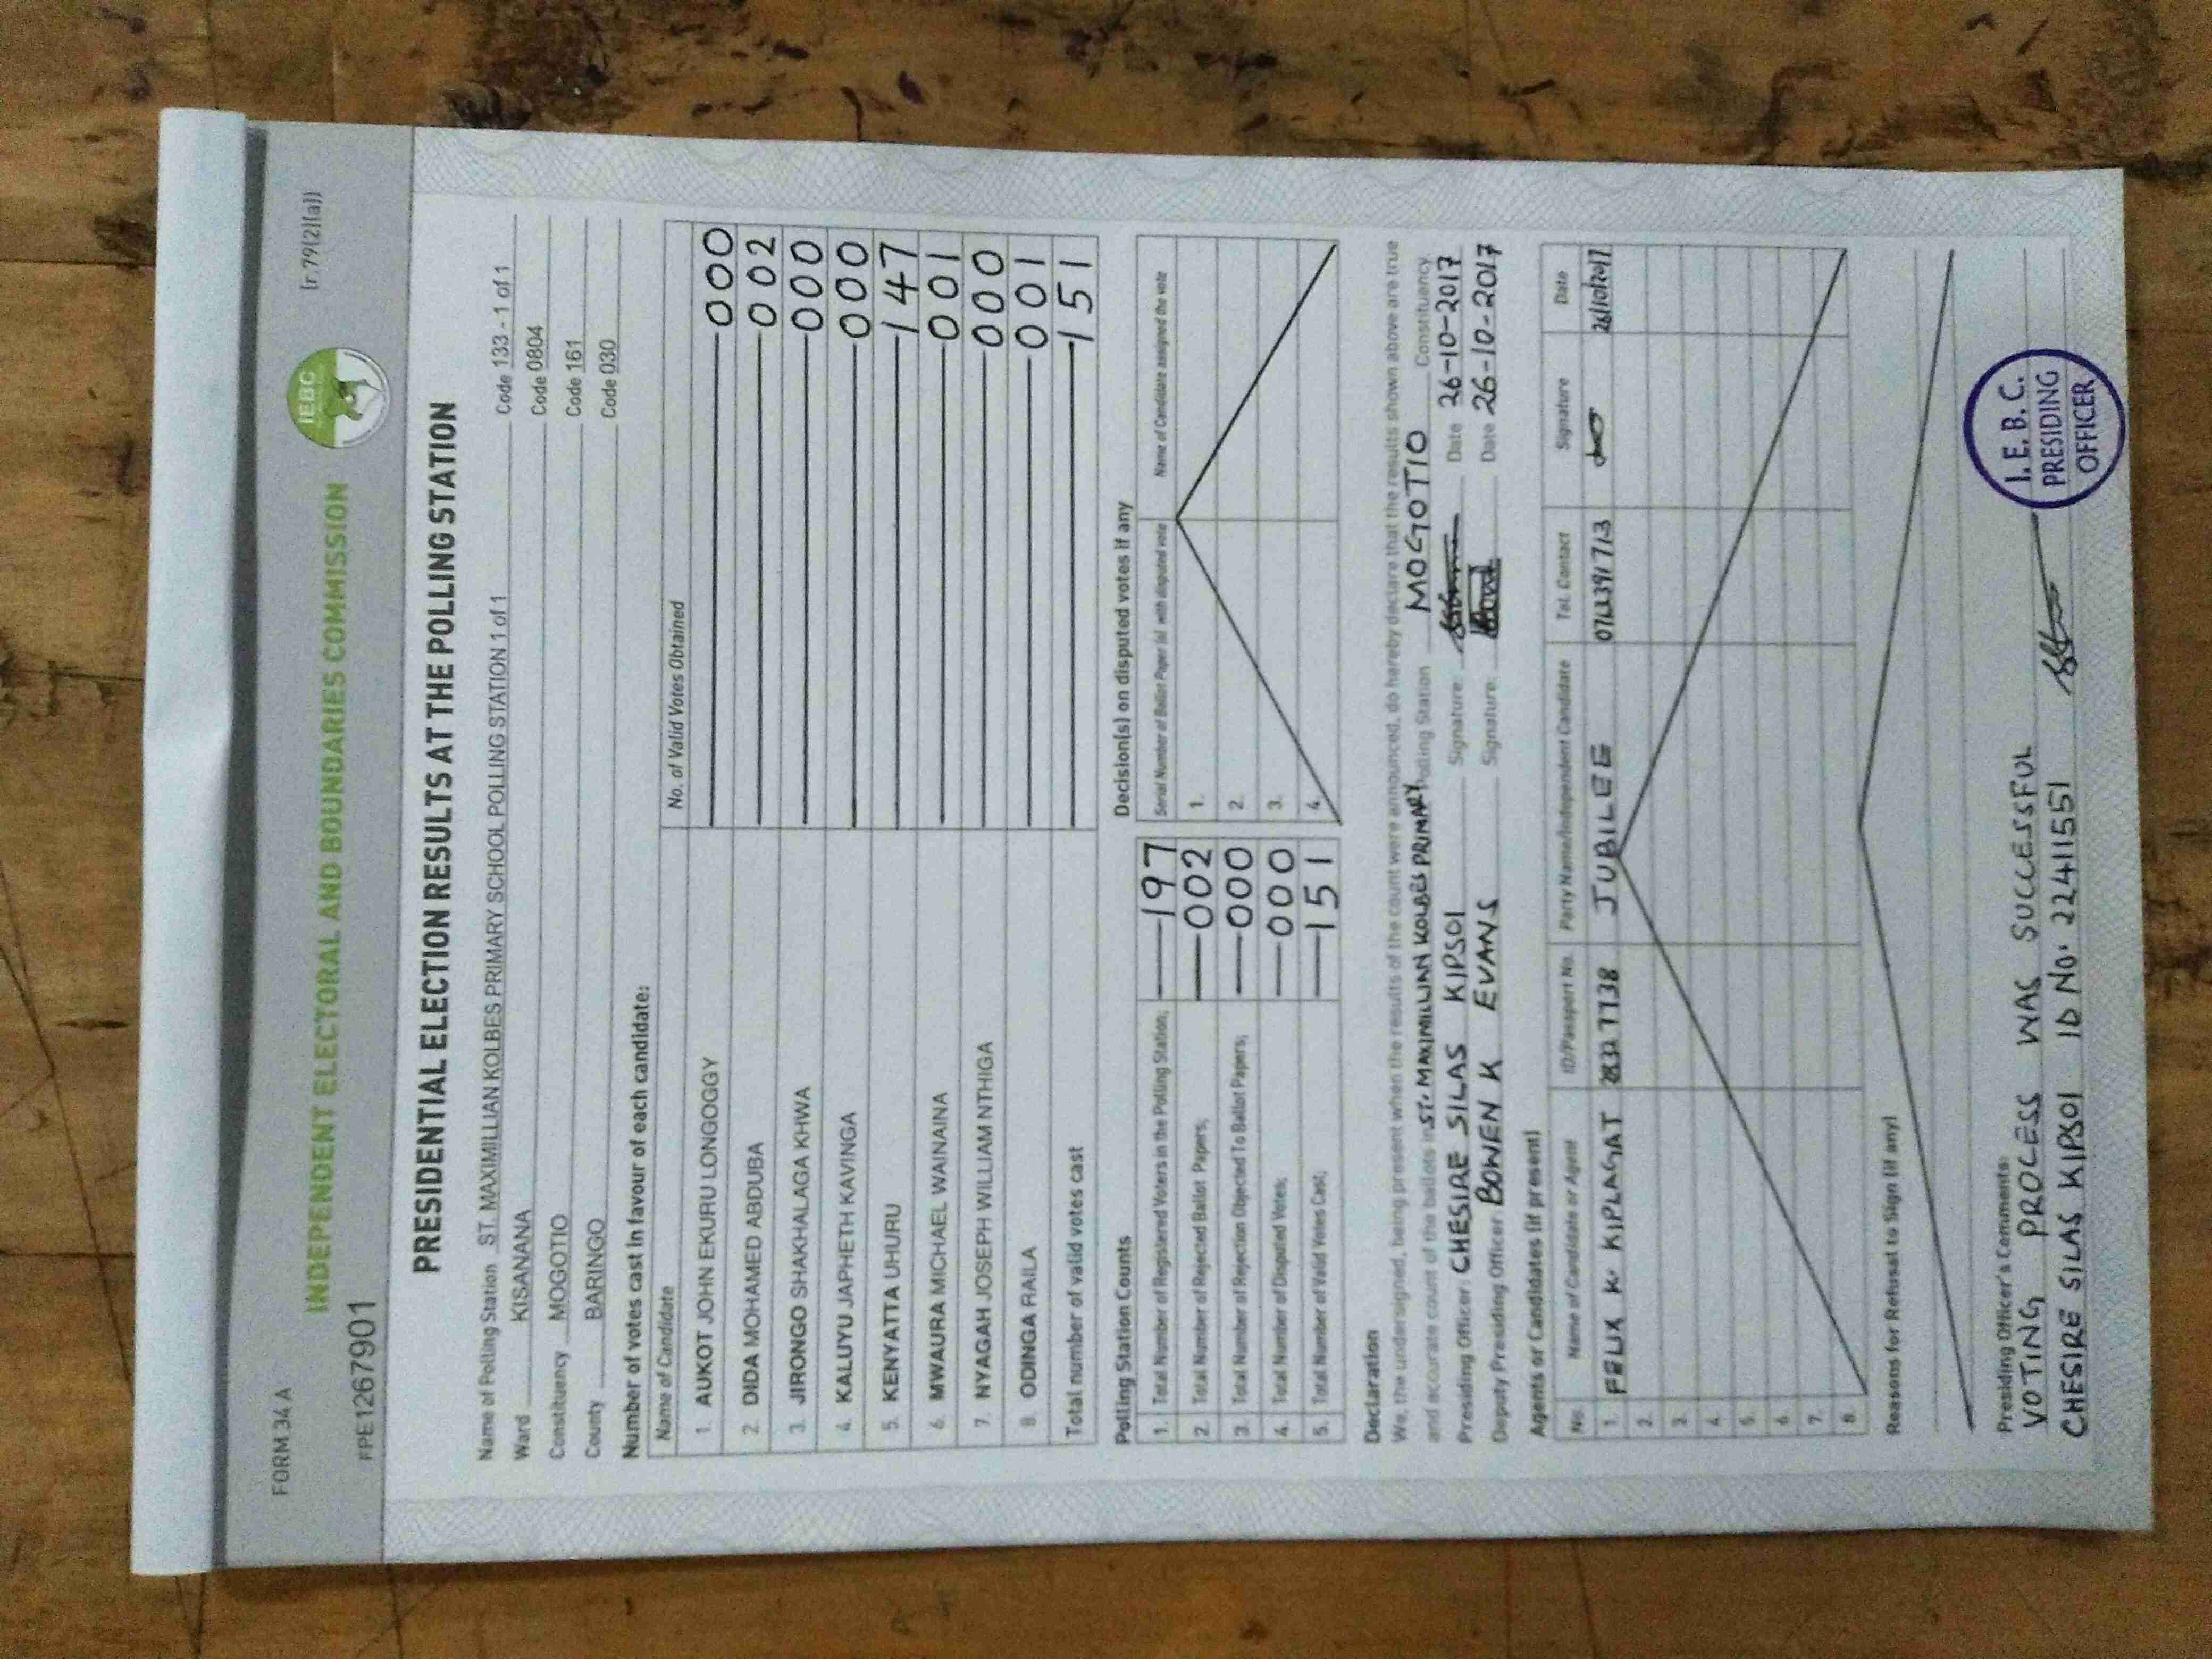 FORM 34 A
[r.79(2)(a)]
INDEPENDENT ELECTORAL AND BOUNDARIES COMMISSION
IEBC
FPE1267901
PRESIDENTIAL ELECTION RESULTS AT THE POLLING STATION
Name of Polling Station ST. MAXIMILLIAN KOLBES PRIMARY SCHOOL POLLING STATION 1 of 1 Code 133 - 1 of 1
Ward KISANANA Code 0804
Constituency MOGOTIO Code 161
County BARINGO Code 030
Number of votes cast in favour of each candidate:
Name of Candidate No. of Valid Votes Obtained
1. AUKOT JOHN EKURU LONGOGGY 000
2. DIDA MOHAMED ABDUBA 002
3. JIRONGO SHAKHALAGA KHWA 000
4. KALUYU JAPHETH KAVINGA 000
5. KENYATTA UHURU 147
6. MWAURA MICHAEL WAINAINA 001
7. NYAGAH JOSEPH WILLIAM NTHIGA 000
8. ODINGA RAILA 001
Total number of valid votes cast 151
Polling Station Counts
1. Total Number of Registered Voters in the Polling Station; 197
2. Total Number of Rejected Ballot Papers; 002
3. Total Number of Rejection Objected To Ballot Papers; 000
4. Total Number of Disputed Votes; 000
5. Total Number of Valid Votes Cast; 151
Decision(s) on disputed votes if any
Serial Number of Ballot Paper (s) with disputed vote Name of Candidate assigned the vote
1.
2.
3.
4.
Declaration
We, the undersigned, being present when the results of the count were announced, do hereby declare that the results shown above are true
and accurate count of the ballots in ST. MAXIMILIAN KOLBES PRIMARY Polling Station MOGOTIO Constituency
Presiding Officer: CHESIRE SILAS KIPSOI Signature: Date 26-10-2017
Deputy Presiding Officer: BOWEN K EVANS Signature: Date 26-10-2017
Agents or Candidates (if present)
No. Name of Candidate or Agent ID/Passport No. Party Name/Independent Candidate Tel. Contact Signature Date
1. FELIX K. KIPLAGAT JUBILEE 26/10/2017
2.
3.
4.
5.
6.
7.
8.
Reasons for Refusal to Sign (if any)
Presiding Officer's Comments:
VOTING PROCESS WAS SUCCESSFUL
CHESIRE SILAS KIPSOI ID No. 22411551
I.E.B.C.
PRESIDING
OFFICER